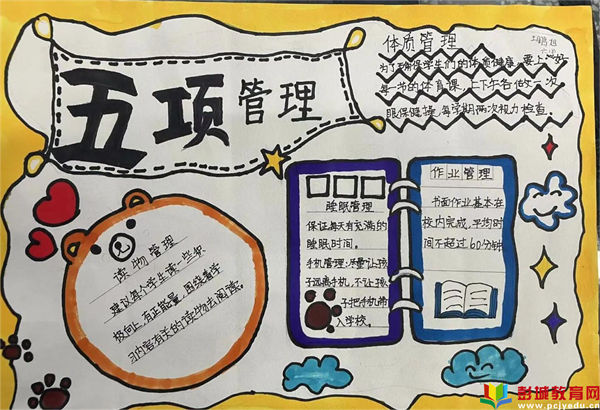 五项管理
体质管理
为了确保学生们的体质健康,要上好
每一节的体育课,上下午各做一次
眼保健操,每学期两次视力检查.
读物管理
建议每个学生读一些如
极向上,有正能量,围绕着学
习内容有关的读物去阅读。
睡眠管理
保证每天有充满的
睡眠时间.
手机管理:尽量让孩
子远离手机,不让孩
子把手机带
入学校。
作业管理
书面作业基本在
校内完成,平均时
间不超过60分钟
彭城教育网
www.pcjyedu.cn